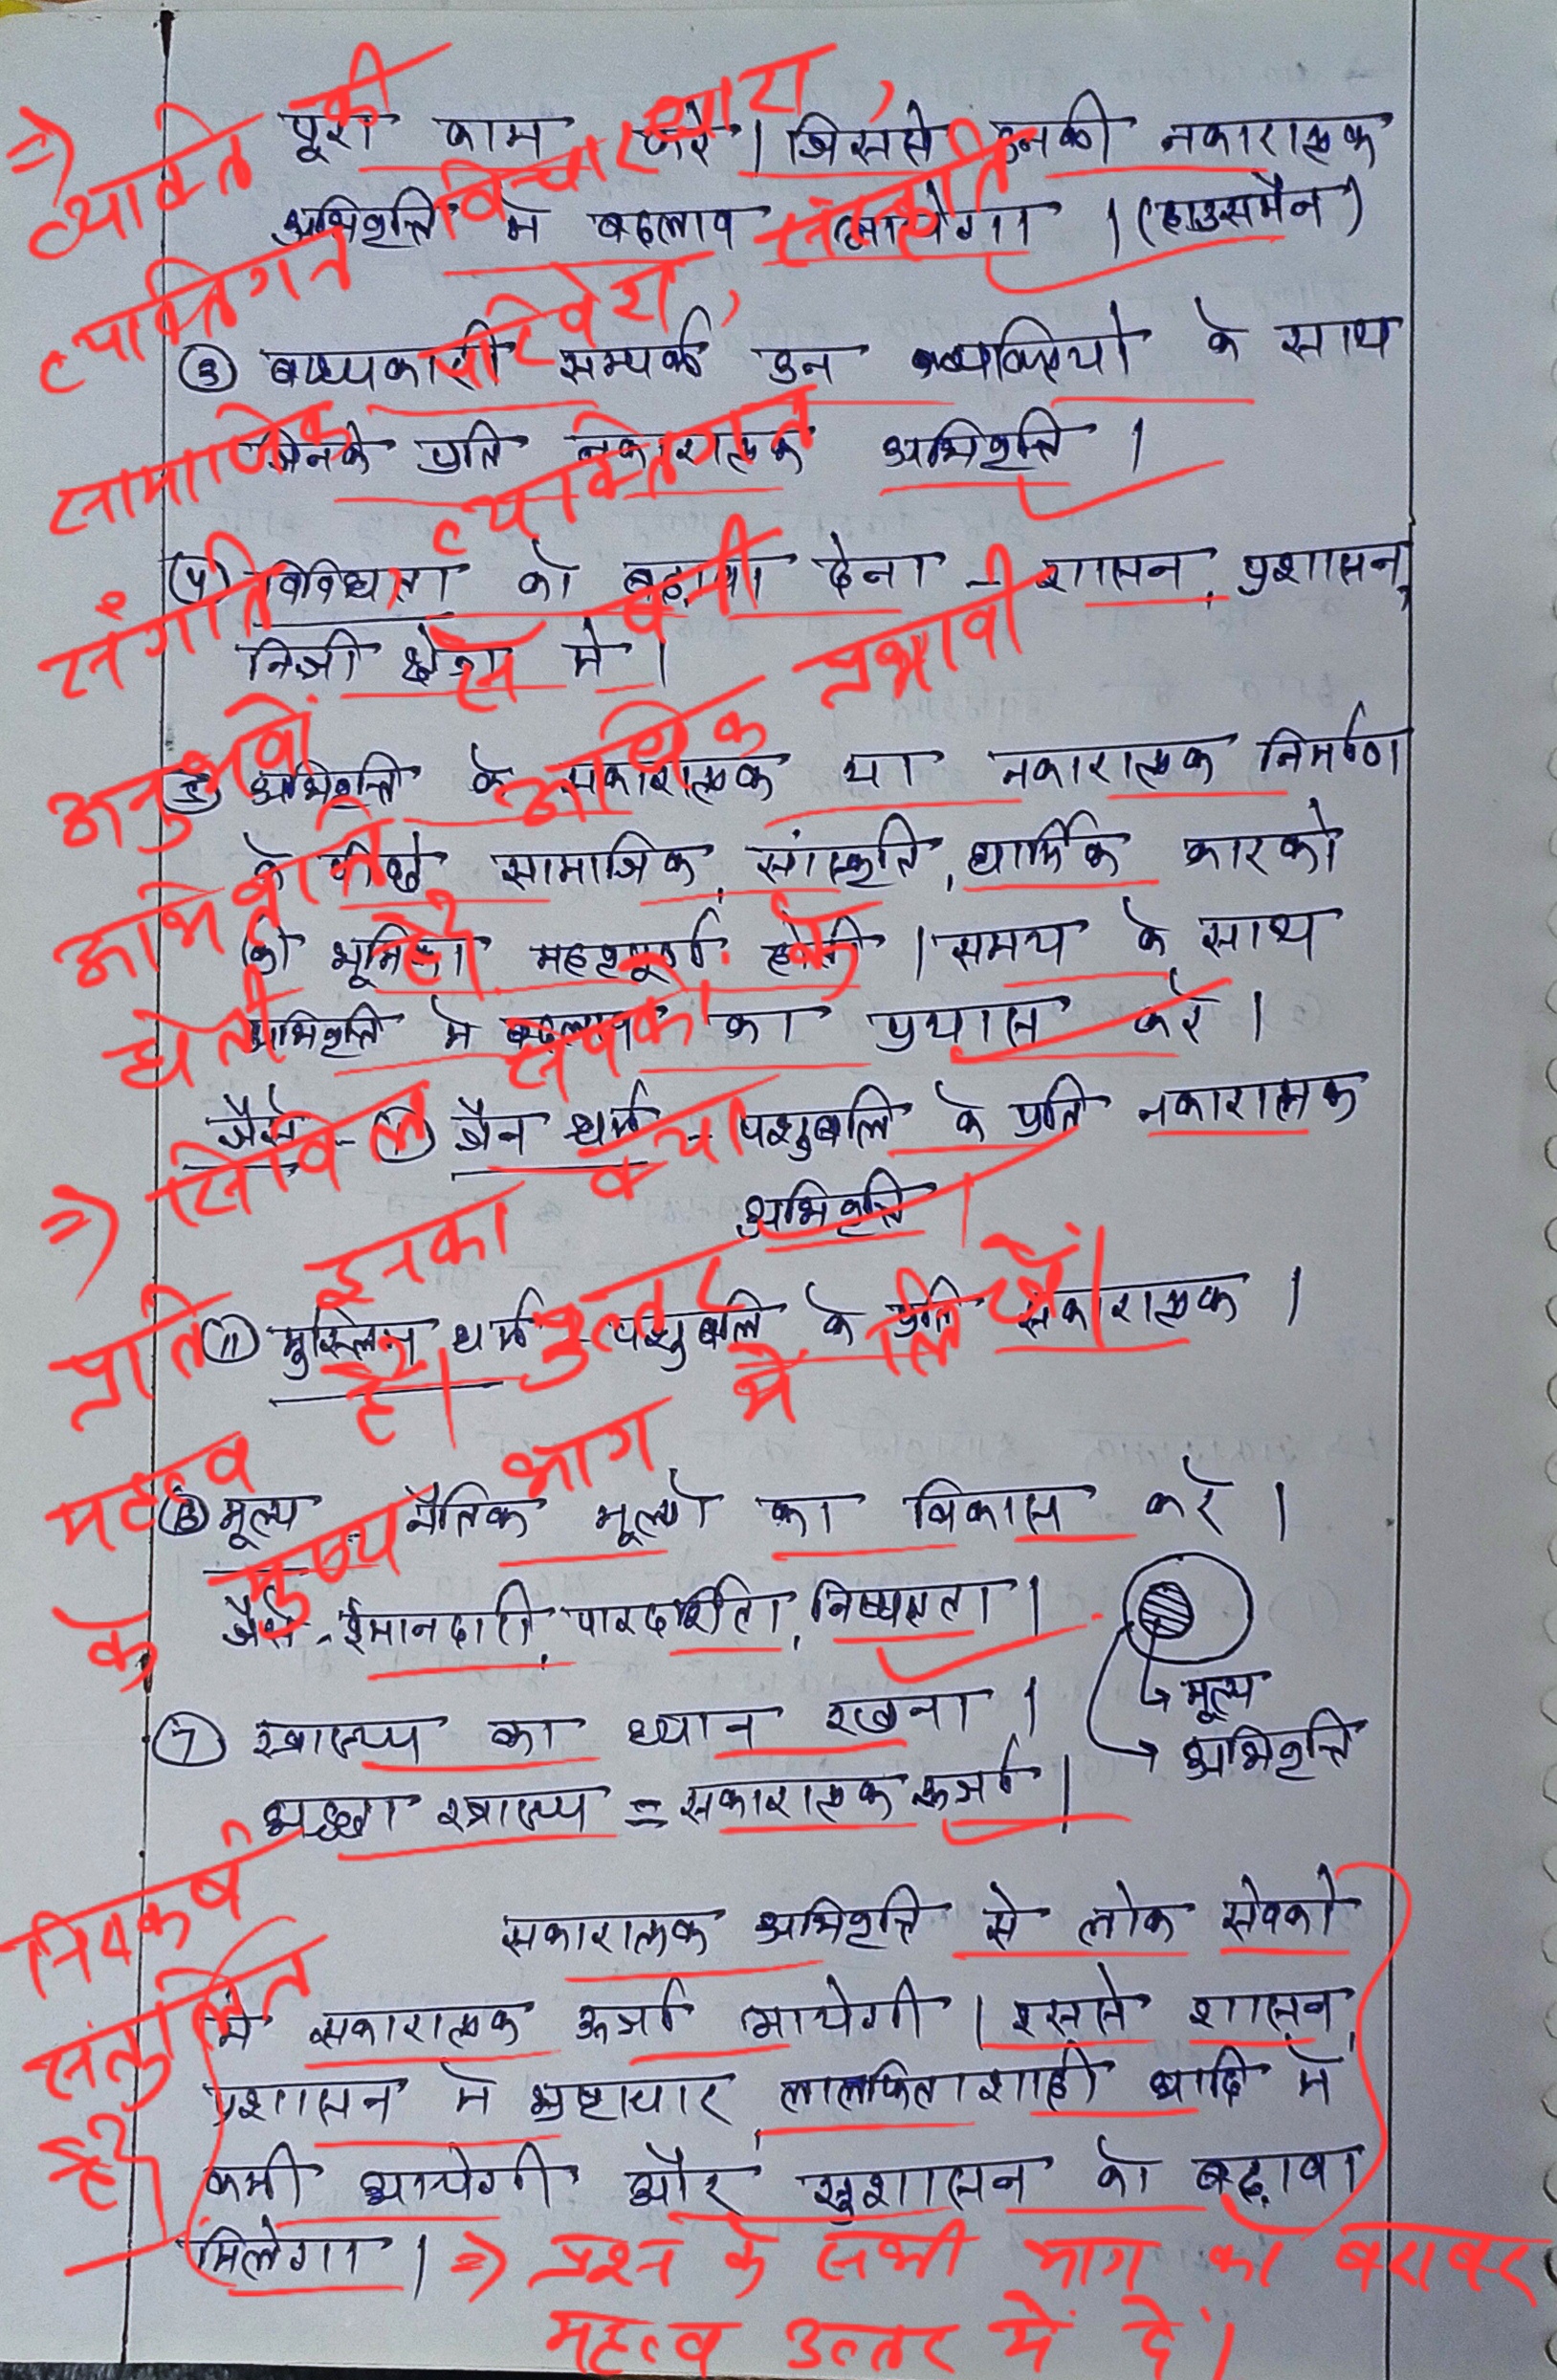 पूरा काम करे। जिससे उनकी नकारात्मक
अभिवृत्ति मे बदलाव आयेगा। (हाउसमैन)
③ बाध्यकारी सम्पर्क उन व्यक्तियो के साथ
जिनके प्रति नकारात्मक अभिवृत्ति।
(4) विविधता को बढ़ावा देना - शासन, प्रशासन,
निजी क्षेत्र मे।
⑤ अभिवृत्ति के सकारात्मक या नकारात्मक निर्माण
के पीछे सामाजिक, सांस्कृति, धार्मिक कारको
की भूमिका महत्वपूर्ण होती। समय के साथ
अभिवृत्ति मे बदलाव का प्रयास करे।
जैसे - (i) जैन धर्म - पशुबलि के प्रति नकारात्मक
अभिवृत्ति।
(ii) मुस्लिम धर्म - पशुबलि के प्रति सकारात्मक।
⑥ मूल्य - नैतिक मूल्यो का विकास करे।
जैसे - ईमानदारी, पारदर्शिता, निष्पक्षता।
मूल्य
अभिवृत्ति
⑦ स्वास्थ्य का ध्यान रखना।
अच्छा स्वास्थ्य = सकारात्मक ऊर्जा।
सकारात्मक अभिवृत्ति से लोक सेवको
मे सकारात्मक ऊर्जा आयेगी। इससे शासन,
प्रशासन मे भ्रष्टाचार, लालफिताशाही आदि मे
कमी आयेगी और सुशासन को बढ़ावा
मिलेगा।
⇒ व्यक्ति की विचारधारा,
व्यक्तिगत संस्कृति
सामाजिक परिवेश,
संगति व्यक्तिगत
अनुभवों से बनी
अभिवृत्ति अधिक प्रभावी
होती है
⇒ सिविल सेवकों के
प्रति इनका क्या
महत्व है। उत्तर
के मुख्य भाग में लिखें।
निष्कर्ष
संतुलित
है।
⇒ प्रश्न के सभी भाग को बराबर
महत्व उत्तर में दें।